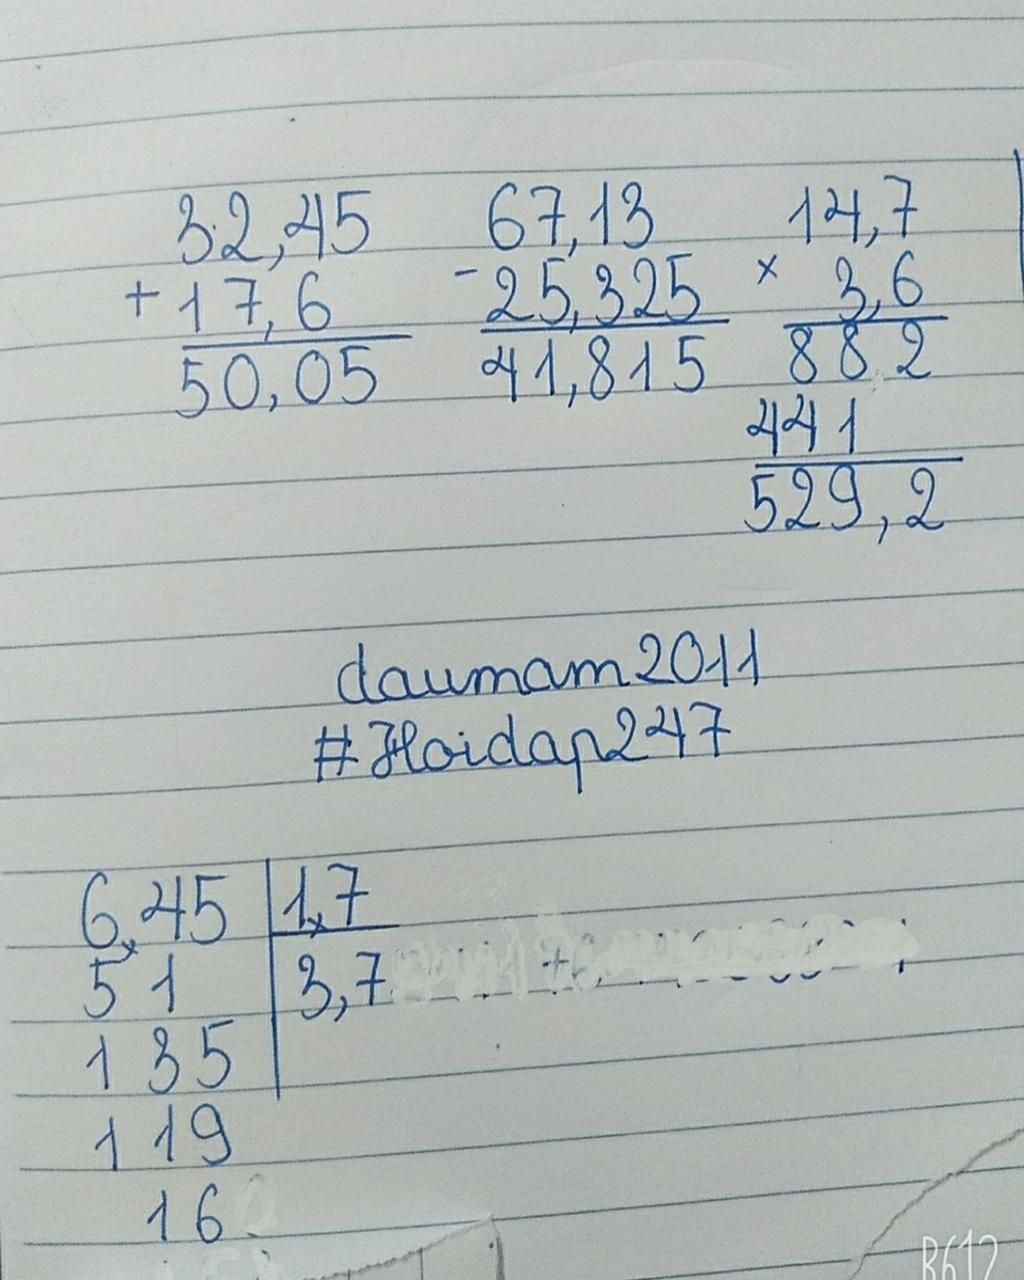 32,45 67,13 14,7
+ 17,6 - 25,325 × 3,6
50,05 41,815 882
441
529,2
daumam2011
#Hoidap247
6,45 1,7
51 3,7
135
119
16
B612